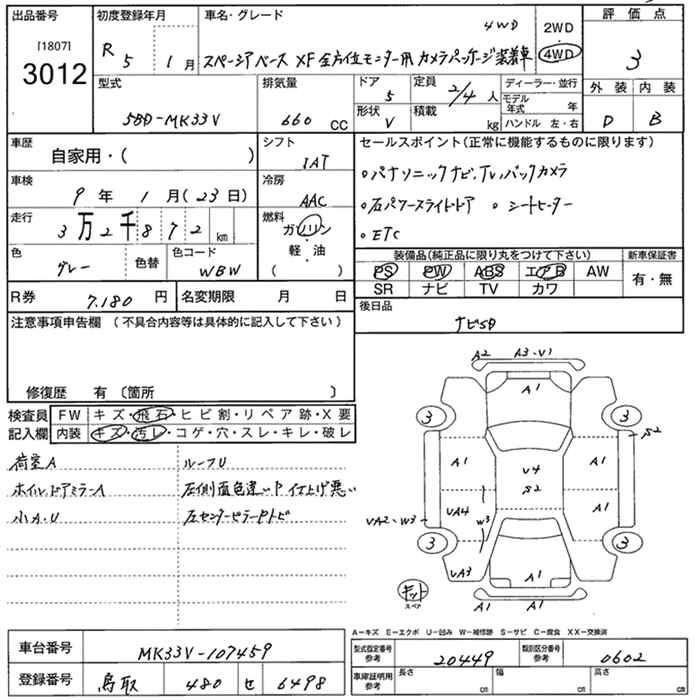 出品番号
[1807]
3012
初度登録年月
R 5 年 1 月
車名・グレード
4WD
スペーシアベース XF 全方位モニター用カメラパッケージ装着車
2WD
4WD
評価点
3
外装 内装
D B
型式
5BD-MK33V
排気量
660 CC
ドア
5
形状
V
定員
2/4 人
積載
kg
ディーラー・並行
モデル年式 年
ハンドル 左・右
車歴
自家用・( )
シフト
IAT
車検
9 年 1 月(23 日)
冷房
AAC
走行
3万2千872 km
燃料
ガソリン
軽・油
( )
色
グレー
色替
色コード
WBW
R券
7.180 円
名変期限 月 日
セールスポイント(正常に機能するものに限ります)
○パナソニックナビ,Tv,バックカメラ
○右パワースライドドア ○シートヒーター
○ETC
装備品(純正品に限り丸をつけて下さい)
新車保証書
PS PW ABS エアB AW
SR ナビ TV カワ
有・無
後日品
ナビSD
注意事項申告欄(不具合内容等は具体的に記入して下さい)
修復歴 有 〔箇所 〕
検査員記入欄
FW キズ・飛石・ヒビ割・リペア跡・X要
内装 キズ・汚レ・コゲ・穴・スレ・キレ・破レ
荷室A ルーフU
ホイルドアミラーA 左側面色違いP仕上げ悪い
小A.U 左センターピラーPトビ
A2 A3・V1
A1
3 3
S2
A1 A1
U4
S2
UA4 W3 A1
UA2・W3
3 3
UA3 A1
キット
スペア
A1 A1
A-キズ E-エクボ U-凹み W-補修跡 S-サビ C-腐食 XX-交換済
車台番号
MK33V-107459
登録番号
鳥取 480 せ 6498
型式指定番号 参考
20449
類別区分番号 参考
0602
車庫証明用 参考
長さ cm
幅 cm
高さ cm